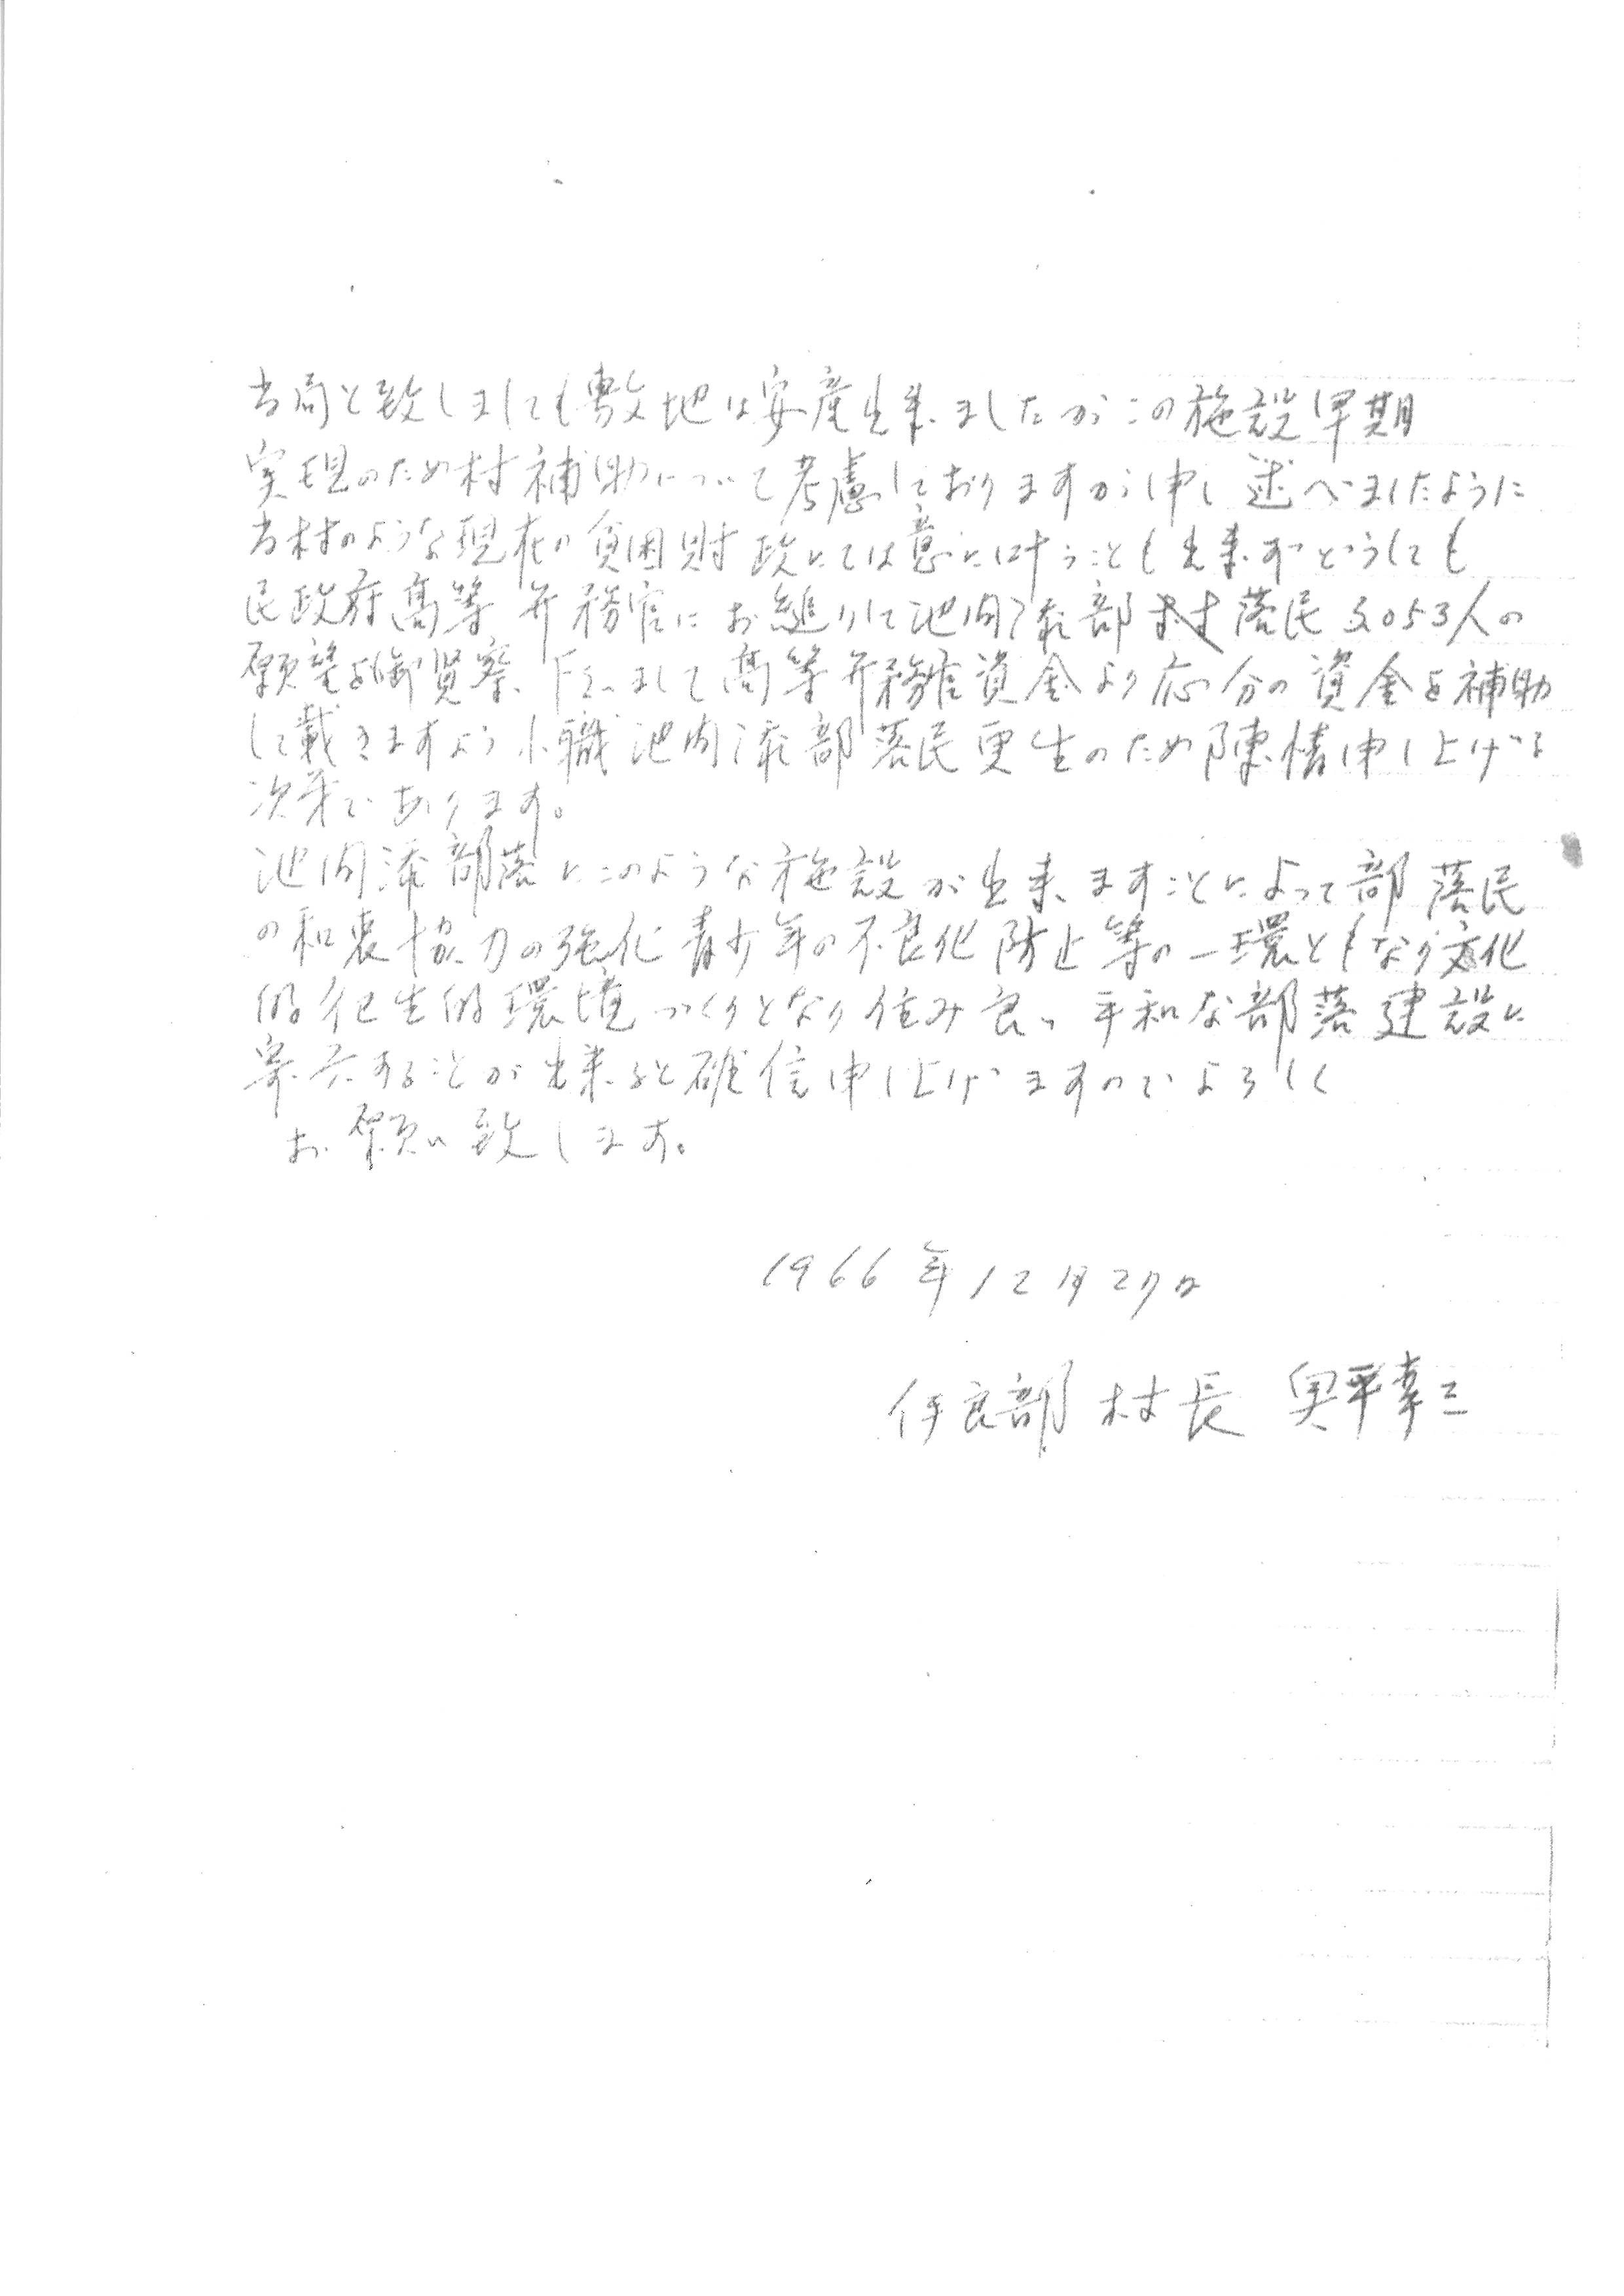 当局と致しましても敷地は安産出来ましたがこの施設早期
実現のため村補助について考慮しておりますが申し述べましたように
当村のような現在の貧困財政にては意に叶うことも出来ずどうしても
民政府高等弁務官にお縋りして池間添部落民3053人の
願望を御賢察下さいまして高等弁務官資金より応分の資金を補助
して戴きますよう小職池間添部落民更生のため陳情申し上げる
次第であります。
池間添部落にこのような施設が出来ますことによって部落民
の和衷協力の強化青少年の不良化防止等の一環ともなり文化
的衛生的環境づくりとなり住み良い平和な部落建設に
寄与することが出来ると確信申し上げますのでよろしく
お願い致します。
1966年12月27日
伊良部村長 奥平幸三